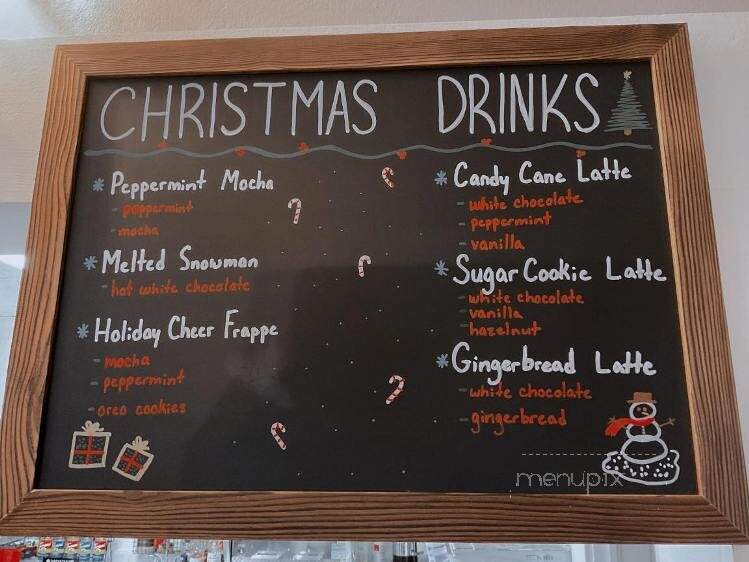 CHRISTMAS DRINKS
* Peppermint Mocha
- peppermint
- mocha
* Melted Snowman
- hot white chocolate
* Holiday Cheer Frappe
- mocha
- peppermint
- oreo cookies
* Candy Cane Latte
- white chocolate
- peppermint
- vanilla
* Sugar Cookie Latte
- white chocolate
- vanilla
- hazelnut
* Gingerbread Latte
- white chocolate
- gingerbread
menupix